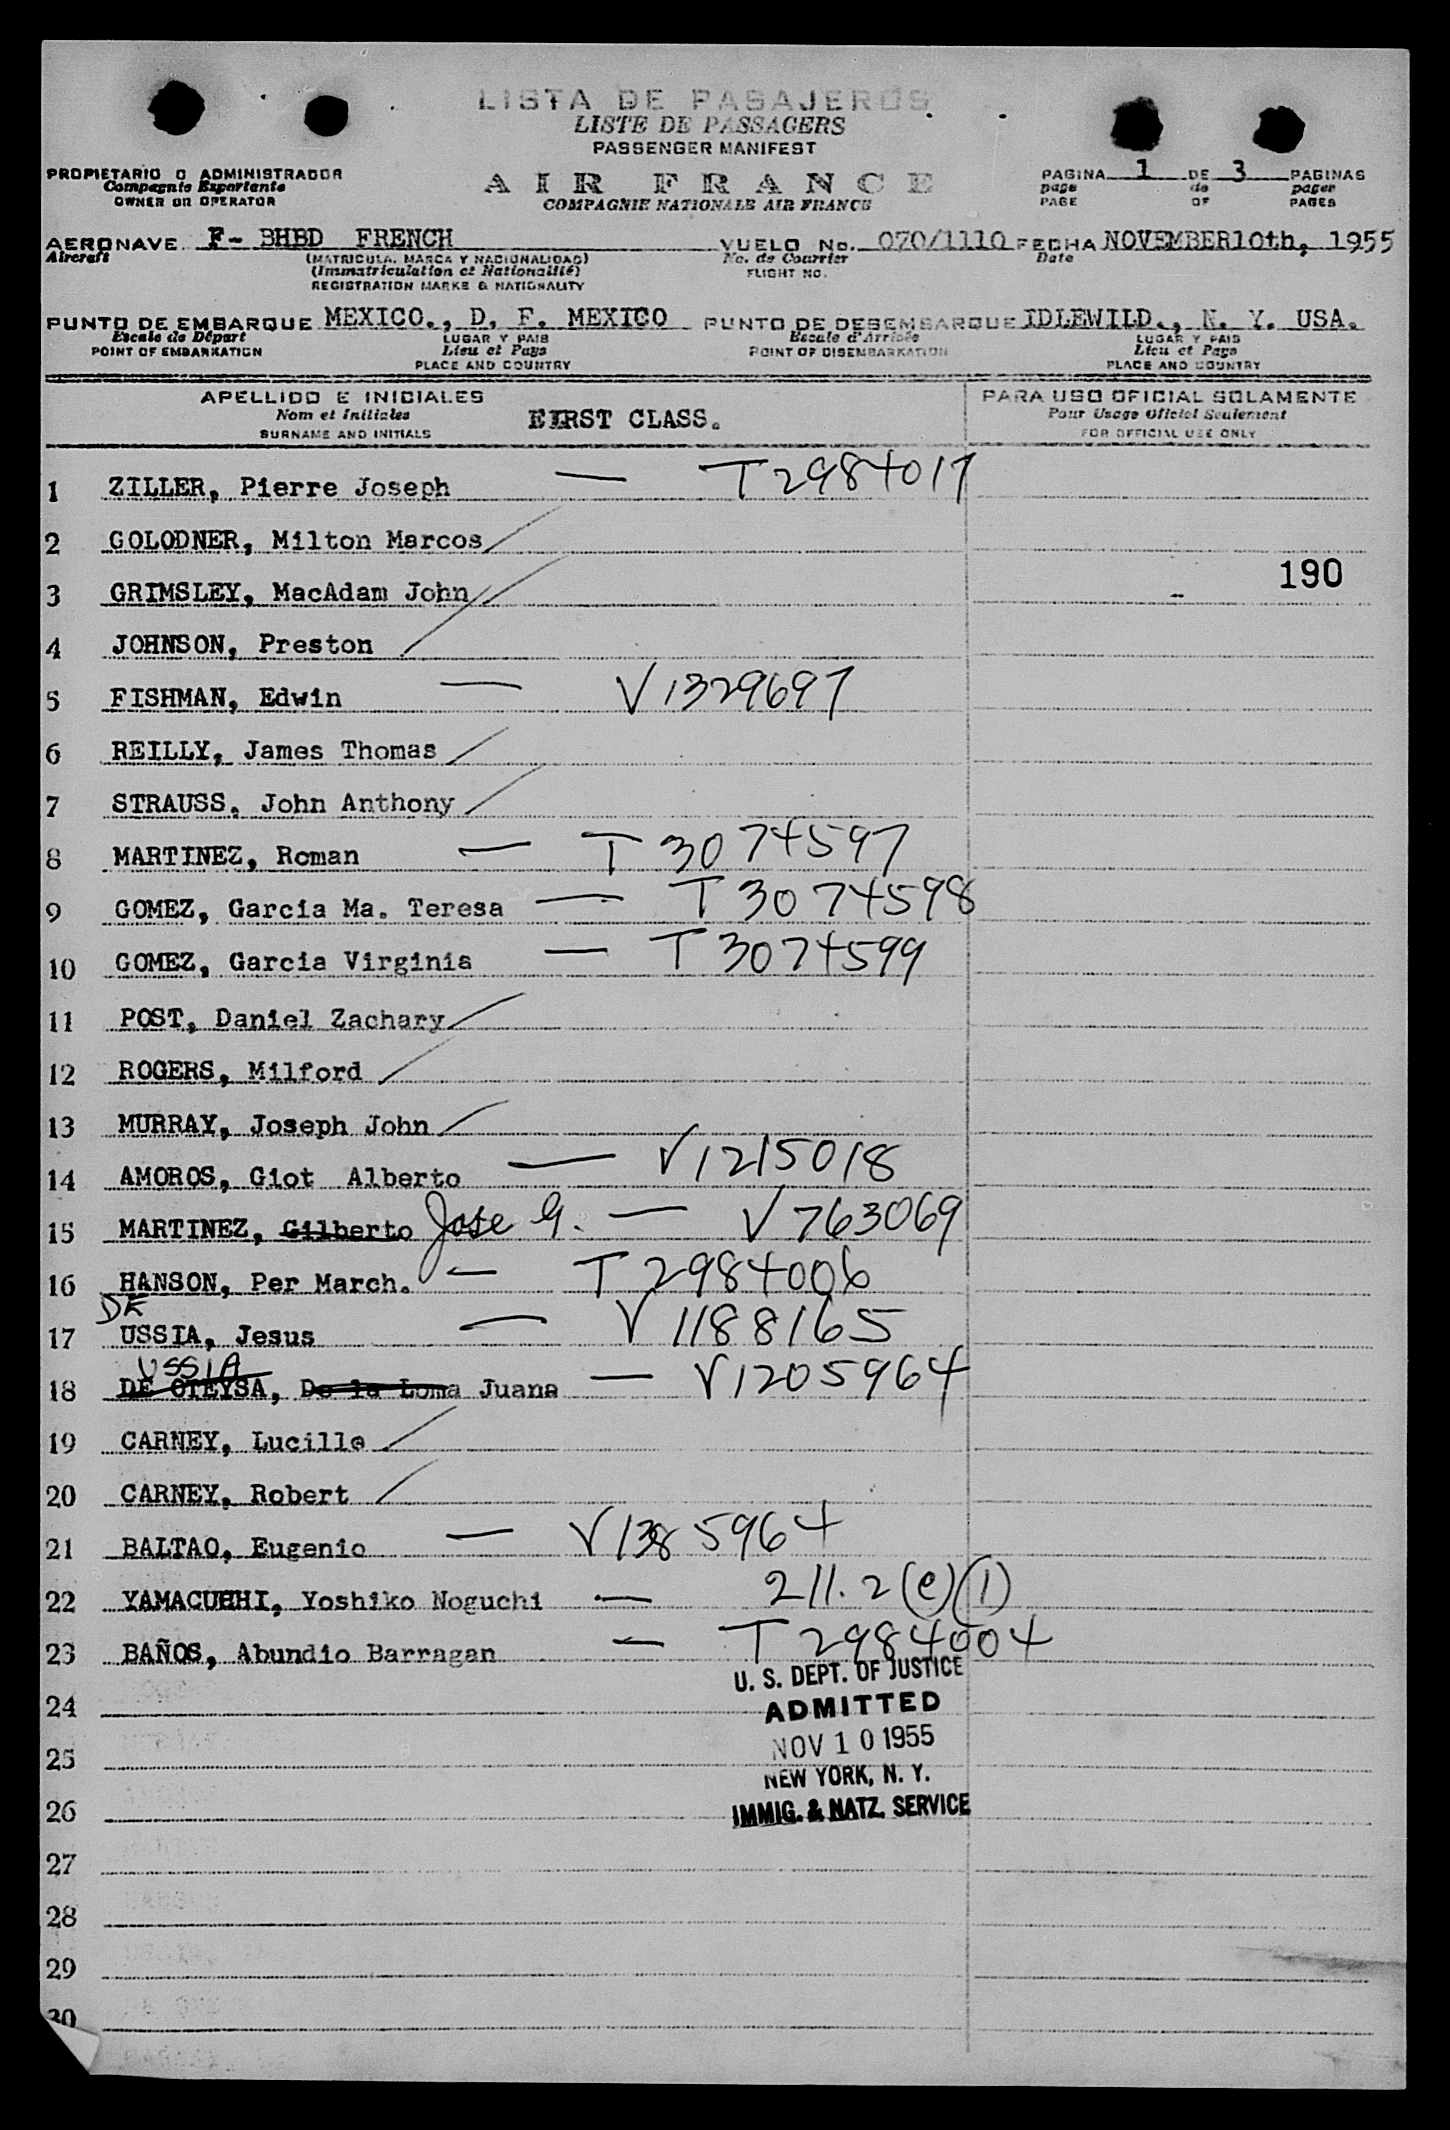 LISTA DE PASAJEROS
LISTE DE PASSAGERS
PASSENGER MANIFEST
PROPIETARIO O ADMINISTRADOR
Compagnie Exportante
OWNER OR OPERATOR
AIR FRANCE
COMPAGNIE NATIONALE AIR FRANCE
PAGINA 1 DE 3 PAGINAS
page de pages
PAGE OF PAGES
AERONAVE F- BHBD FRENCH VUELO No. 070/1110 FECHA NOVEMBER 10th, 1955
Aircraft (MATRICULA, MARCA Y NACIONALIDAD) No. de Courrier Date
(Immatriculation et Nationalité) FLIGHT NO.
REGISTRATION MARKS & NATIONALITY
PUNTO DE EMBARQUE MEXICO., D. F. MEXICO PUNTO DE DESEMBARQUE IDLEWILD., N. Y. USA.
Escale de Départ LUGAR Y PAIS Escale d'Arrivée LUGAR Y PAIS
POINT OF EMBARKATION Lieu et Pays POINT OF DISEMBARKATION Lieu et Pays
PLACE AND COUNTRY PLACE AND COUNTRY
APELLIDO E INICIALES PARA USO OFICIAL SOLAMENTE
Nom et Initiales FIRST CLASS. Pour Usage Officiel Seulement
SURNAME AND INITIALS FOR OFFICIAL USE ONLY
1 ZILLER, Pierre Joseph — T2984017
2 GOLODNER, Milton Marcos
190
3 GRIMSLEY, MacAdam John
4 JOHNSON, Preston
5 FISHMAN, Edwin — V1329697
6 REILLY, James Thomas
7 STRAUSS, John Anthony
8 MARTINEZ, Roman — T3074597
9 GOMEZ, Garcia Ma. Teresa — T3074598
10 GOMEZ, Garcia Virginia — T3074599
11 POST, Daniel Zachary
12 ROGERS, Milford
13 MURRAY, Joseph John
14 AMOROS, Giot Alberto — V1215018
15 MARTINEZ, Gilberto Jose G. — V763069
16 HANSON, Per March. — T2984006
DE
17 USSIA, Jesus — V1188165
USSIA
18 DE OTEYSA, De la Loma Juana — V1205964
19 CARNEY, Lucille
20 CARNEY, Robert
21 BALTAO, Eugenio — V1385964
22 YAMACUHHI, Yoshiko Noguchi — 211.2(e)(1)
23 BAÑOS, Abundio Barragan — T2984004
U. S. DEPT. OF JUSTICE
24
ADMITTED
25
NOV 10 1955
NEW YORK, N. Y.
26
IMMIG. & NATZ. SERVICE
27
28
29
30